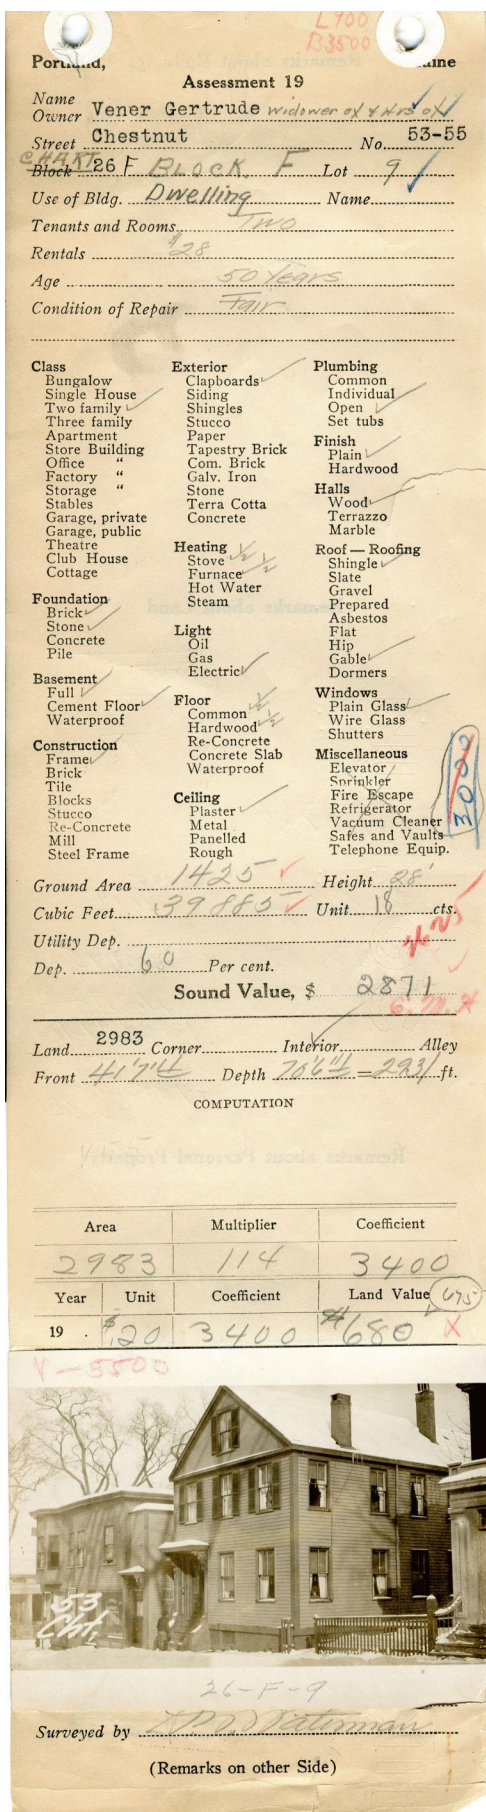 L 900
B 3500
Portland, Maine
Assessment 19
Name
Owner Vener Gertrude widower of & Hrs of
Street Chestnut No. 53-55
CHART
Block 26 F BLOCK F Lot 9
Use of Bldg. Dwelling Name
Tenants and Rooms Two
Rentals $28
Age 50 Years
Condition of Repair Fair
Class
Bungalow
Single House
Two family
Three family
Apartment
Store Building
Office "
Factory "
Storage "
Stables
Garage, private
Garage, public
Theatre
Club House
Cottage
Foundation
Brick
Stone
Concrete
Pile
Basement
Full
Cement Floor
Waterproof
Construction
Frame
Brick
Tile
Blocks
Stucco
Re-Concrete
Mill
Steel Frame
Exterior
Clapboards
Siding
Shingles
Stucco
Paper
Tapestry Brick
Com. Brick
Galv. Iron
Stone
Terra Cotta
Concrete
Heating
Stove 1/2
Furnace 1/2
Hot Water
Steam
Light
Oil
Gas
Electric
Floor
Common 1/2
Hardwood 1/2
Re-Concrete
Concrete Slab
Waterproof
Ceiling
Plaster
Metal
Panelled
Rough
Plumbing
Common
Individual
Open
Set tubs
Finish
Plain
Hardwood
Halls
Wood
Terrazzo
Marble
Roof — Roofing
Shingle
Slate
Gravel
Prepared
Asbestos
Flat
Hip
Gable
Dormers
Windows
Plain Glass
Wire Glass
Shutters
Miscellaneous
Elevator
Sprinkler
Fire Escape
Refrigerator
Vacuum Cleaner
Safes and Vaults
Telephone Equip.
3000
Ground Area 1425 Height 28'
Cubic Feet 39885 Unit 18 cts.
Utility Dep.
Dep. 60 Per cent.
Sound Value, $ 2871
Land 2983 Corner Interior Alley
Front 41'7"4 Depth 70'6"1/2 = 2931 ft.
COMPUTATION
Area Multiplier Coefficient
2983 114 3400
Year Unit Coefficient Land Value 675
19 . $.20 3400 $680 X
V-5500
53
Cht.
26-F-9
Surveyed by Waterman
(Remarks on other Side)